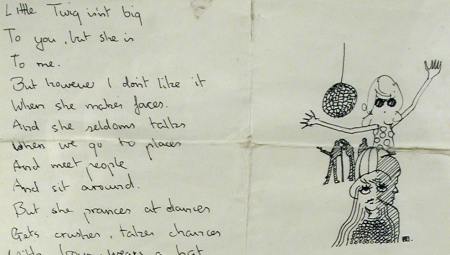 Little Twig isn't big
To you, but she is
To me.
But however I don't like it
When she makes faces.
And she seldoms talks
When we go to places
And meet people
And sit around.
But she prances at dances
Gets crushes, takes chances
wears a hat